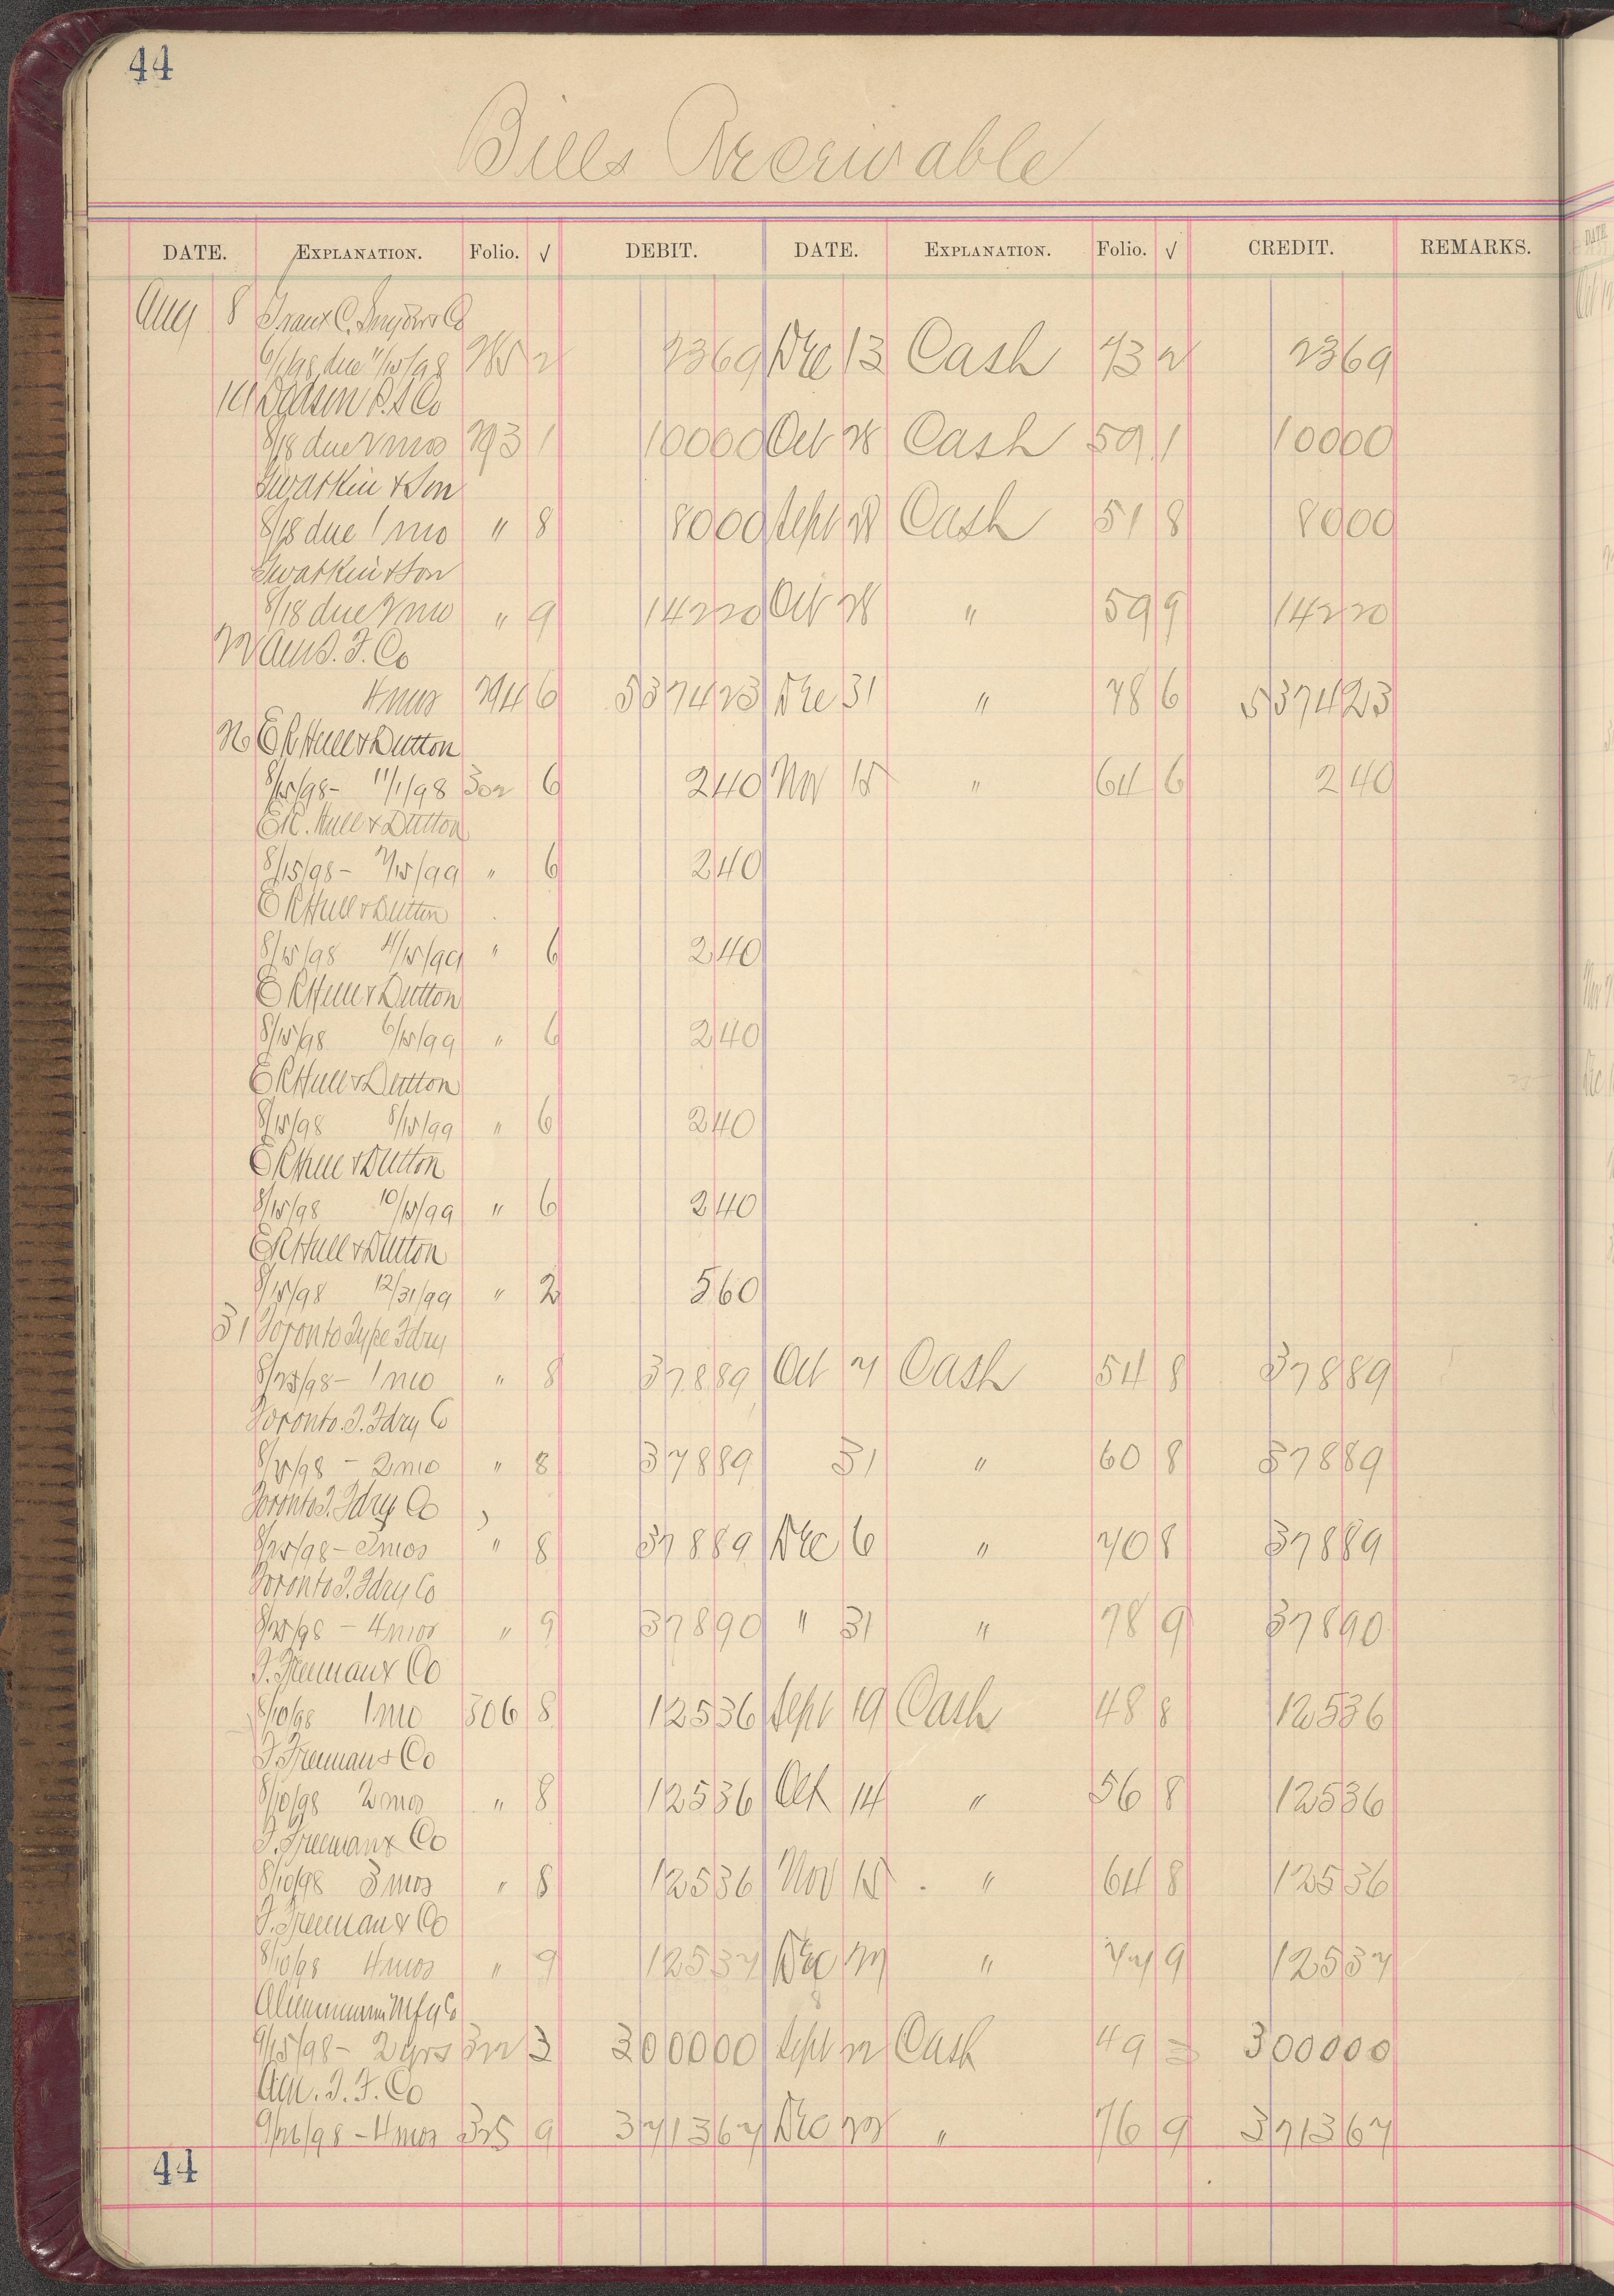 44
Bills Receivable
DATE. EXPLANATION. Folio. √ DEBIT. DATE. EXPLANATION. Folio. √ CREDIT. REMARKS.
Aug 8
6/1/98 due 11/15/98 285 2 2369 Dec 13 Cash 73 2 2369
Dodson P. S Co
8/18 due 2 mos 293 1 10000 Oct 28 Cash 59 1 10000
Gwatkin & Son
8/18 due 1 mo " 8 8000 Sept 28 Cash 51 8 8000
Gwatkin & Son
8/18 due 2 mo " 9 14220 Oct 28 " 59 9 14220
22 Am T. F. Co
4 mos 294 6 537423 Dec 31 " 78 6 537423
26 E R Hull & Dutton
8/15/98 - 11/1/98 302 6 240 Nov 15 " 64 6 240
E R. Hull & Dutton
8/15/98 - 2/15/99 " 6 240
E R Hull & Dutton
8/15/98 4/15/99 " 6 240
E R Hull & Dutton
8/15/98 6/15/99 " 6 240
E R Hull & Dutton
8/15/98 8/15/99 " 6 240
E R Hull & Dutton
8/15/98 10/15/99 " 6 240
E R Hull & Dutton
8/15/98 12/31/99 " 2 560
31 Toronto Type Fdry
8/25/98 - 1 mo " 8 37889 Oct 7 Cash 54 8 37889
Toronto. T. Fdry Co
8/25/98 - 2 mo " 8 37889 31 " 60 8 37889
Toronto T. Fdry Co
8/25/98 - 3 mos " 8 37889 Dec 6 " 70 8 37889
Toronto T. Fdry Co
8/25/98 - 4 mos " 9 37890 " 31 " 78 9 37890
T. Freeman & Co
8/10/98 1 mo 306 8 12536 Sept 19 Cash 48 8 12536
T. Freeman & Co
8/10/98 2 mos " 8 12536 Oct 14 " 56 8 12536
T. Freeman & Co
8/10/98 3 mos " 8 12536 Nov 15 " 64 8 12536
T. Freeman & Co
8/10/98 4 mos " 9 12537 Dec " 9 12537
Mfg Co
9/15/98 - 2 yrs 322 3 300000 Sept 22 Cash 49 3 300000
Am. T. F. Co
9/26/98 - 4 mos 325 9 371367 Dec " 76 9 371367
44